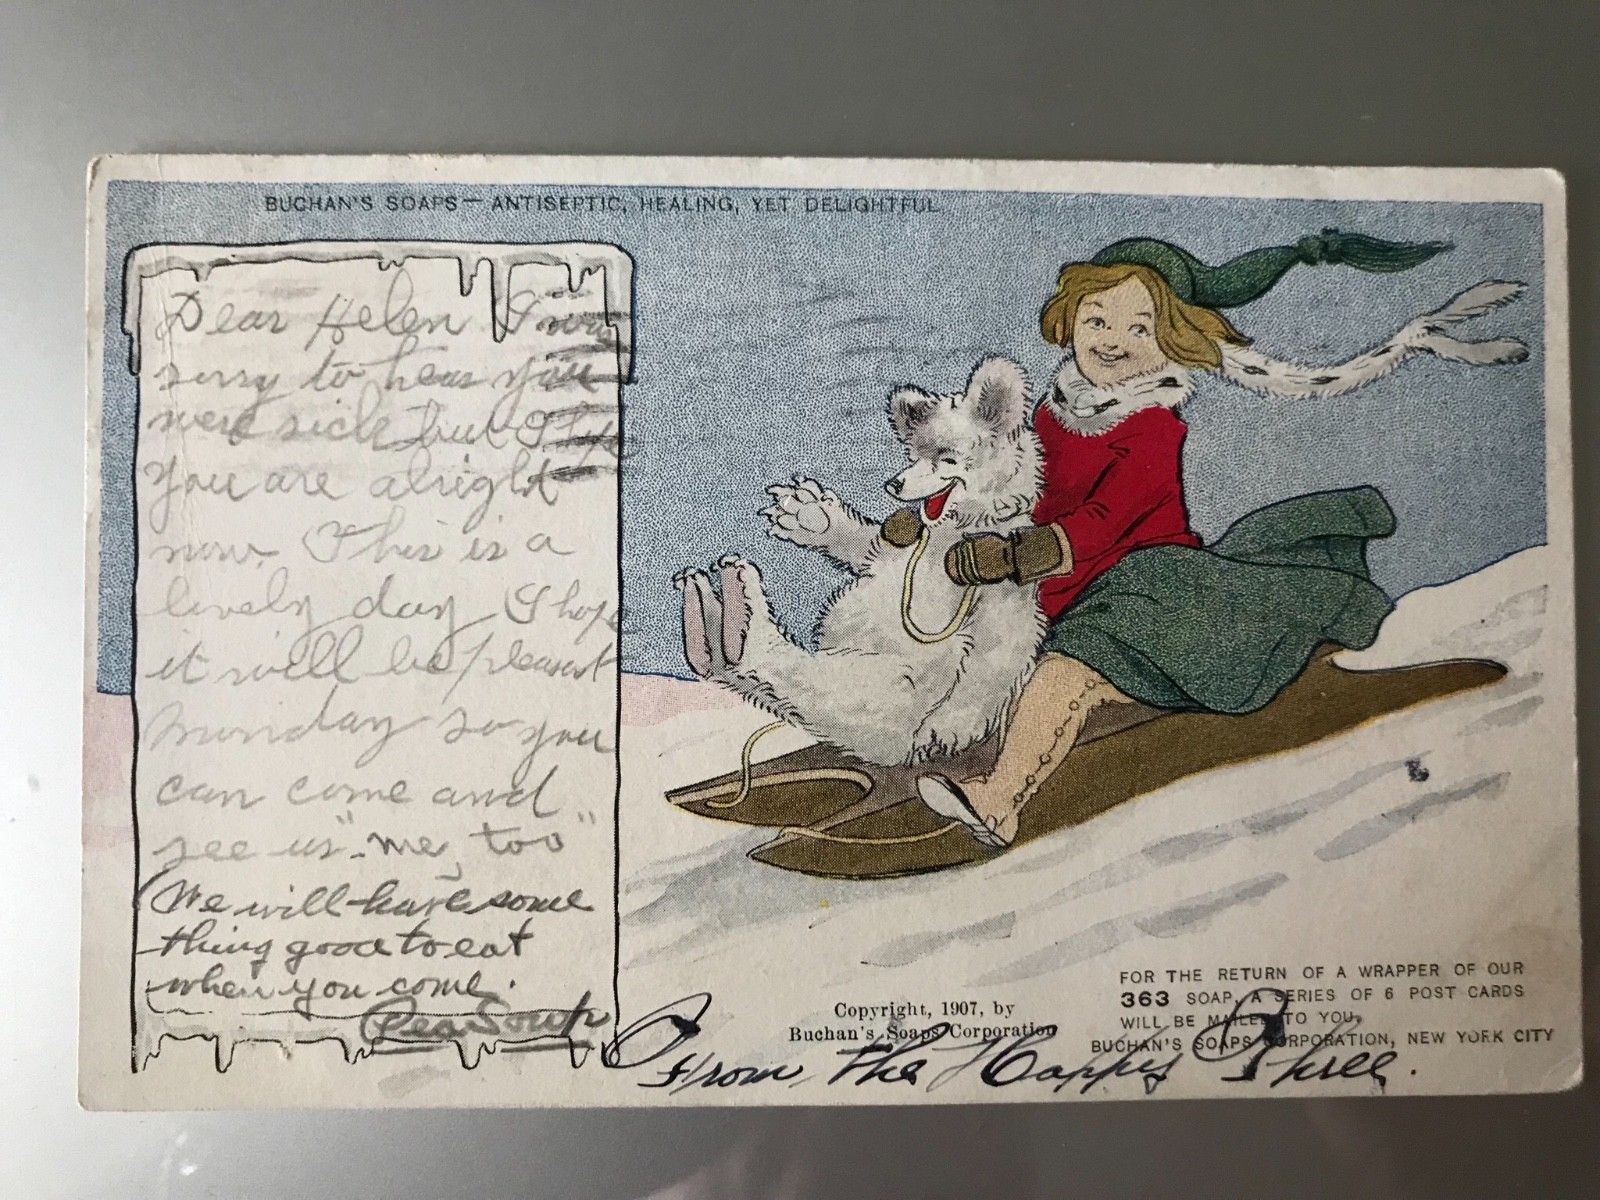 BUCHAN'S SOAPS — ANTISEPTIC, HEALING, YET DELIGHTFUL
Dear Helen I was
sorry to hear you
were sick but I hope
you are alright
now. This is a
lovely day I hope
it will be pleasant
Monday so you
can come and
see us "me, too"
We will have some
thing good to eat
when you come.
From the Happy Three.
Copyright, 1907, by
Buchan's Soaps Corporation
FOR THE RETURN OF A WRAPPER OF OUR
363 SOAP, A SERIES OF 6 POST CARDS
WILL BE MAILED TO YOU.
BUCHAN'S SOAPS CORPORATION, NEW YORK CITY